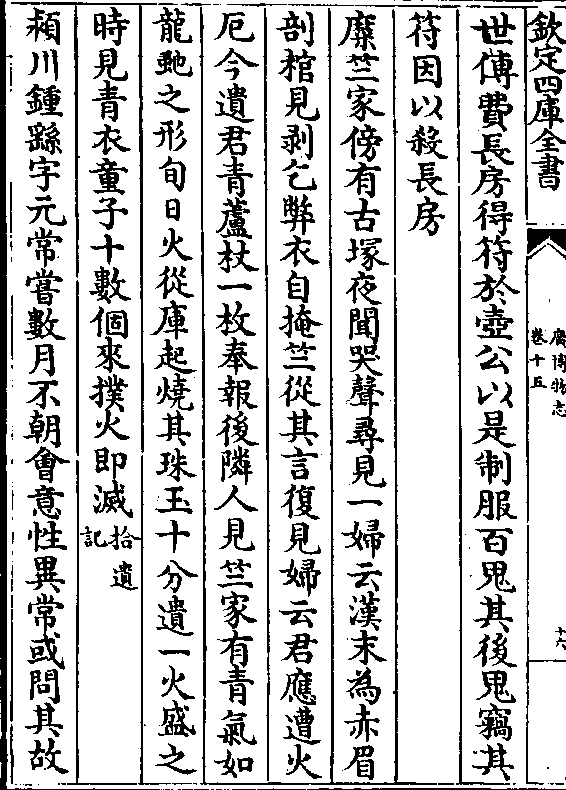 欽定四庫全書
廣博物志
卷十五
十六
世傳費長房得符於壺公以是制服百鬼其後鬼竊其
符因以殺長房
糜竺家傍有古塚夜聞哭聲尋見一婦云漢末為赤眉
剖棺見剥乞弊衣自掩竺從其言復見婦云君應遭火
厄今遺君青蘆杖一枚奉報後隣人見竺家有青氣如
龍虵之形旬日火從庫起燒其珠玉十分遺一火盛之
時見青衣童子十數個來撲火即滅拾遺記
潁川鍾繇字元常嘗數月不朝會意性異常或問其故